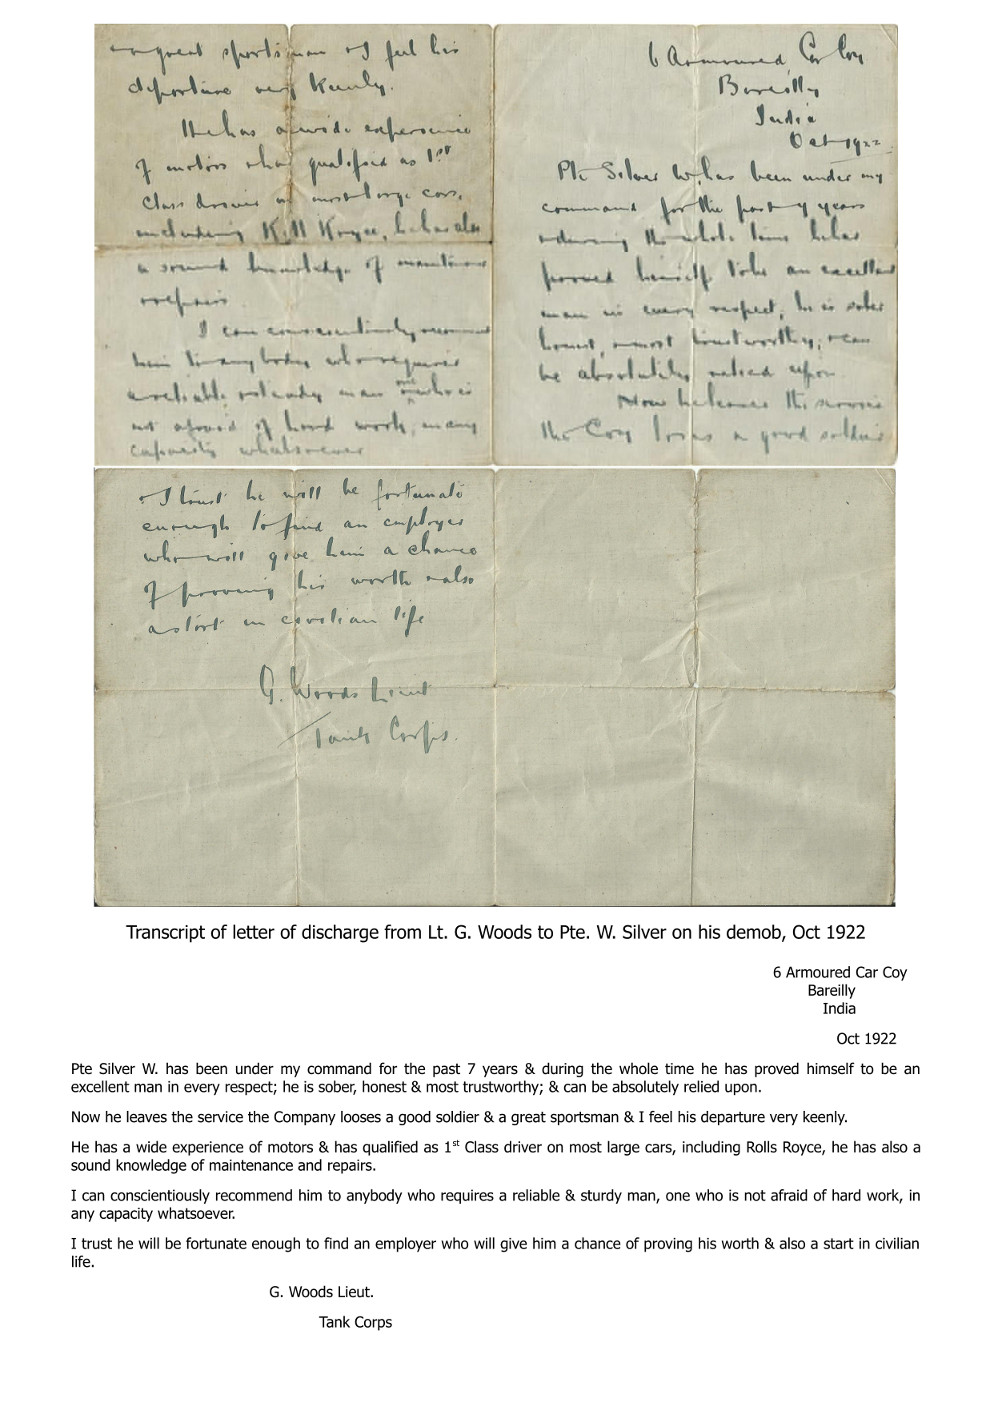 6 Armoured Car Coy
Bareilly
India
Oct 1922
Pte Silver W. has been under my
command for the past 7 years
& during the whole time he has
proved himself to be an excellent
man in every respect; he is sober
honest, & most trustworthy; & can
be absolutely relied upon.
Now he leaves the service
the Coy loses a good soldier
& a great sportsman & I feel his
departure very keenly.
He has a wide experience
of motors & has qualified as 1st
Class driver on most large cars,
including Rolls Royce, he has also
a sound knowledge of maintenance
& repairs.
I can conscientiously recommend
him to anybody who requires
a reliable & steady man one who is
not afraid of hard work, in any
capacity whatsoever
I trust he will be fortunate
enough to find an employer
who will give him a chance
of proving his worth & also
a start in civilian life
G. Woods Lieut
Tank Corps.
Transcript of letter of discharge from Lt. G. Woods to Pte. W. Silver on his demob, Oct 1922
6 Armoured Car Coy
Bareilly
India
Oct 1922
Pte Silver W. has been under my command for the past 7 years & during the whole time he has proved himself to be an
excellent man in every respect; he is sober, honest & most trustworthy; & can be absolutely relied upon.
Now he leaves the service the Company looses a good soldier & a great sportsman & I feel his departure very keenly.
He has a wide experience of motors & has qualified as 1st Class driver on most large cars, including Rolls Royce, he has also a
sound knowledge of maintenance and repairs.
I can conscientiously recommend him to anybody who requires a reliable & sturdy man, one who is not afraid of hard work, in
any capacity whatsoever.
I trust he will be fortunate enough to find an employer who will give him a chance of proving his worth & also a start in civilian
life.
G. Woods Lieut.
Tank Corps